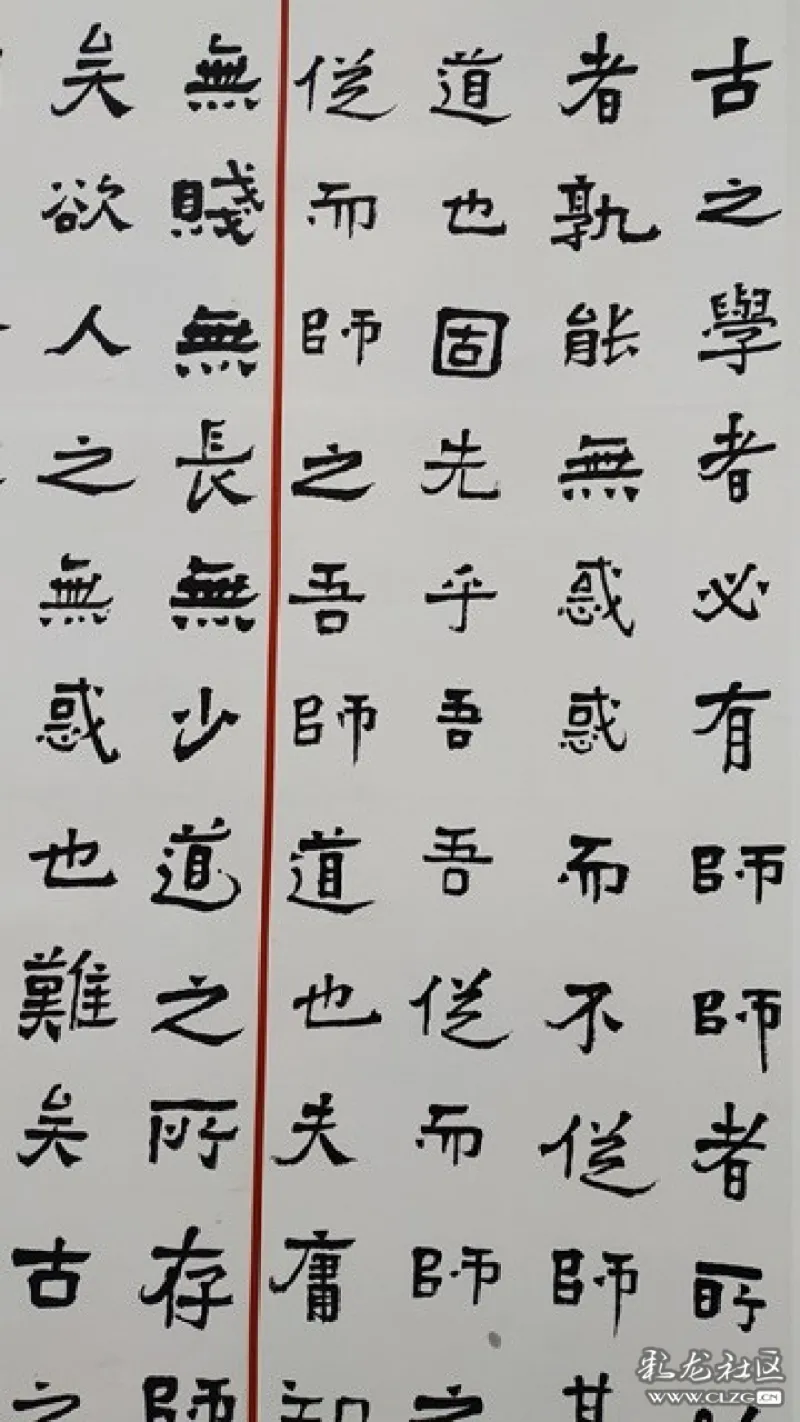 古之學者必有師師者所
者孰能無惑惑而不從師其
道也固先乎吾吾從而師之
從而師之吾師道也夫庸知
無賤無長無少道之所存師
矣欲人之無惑也難矣古之
彩龙社区
WWW.CLZG.CN